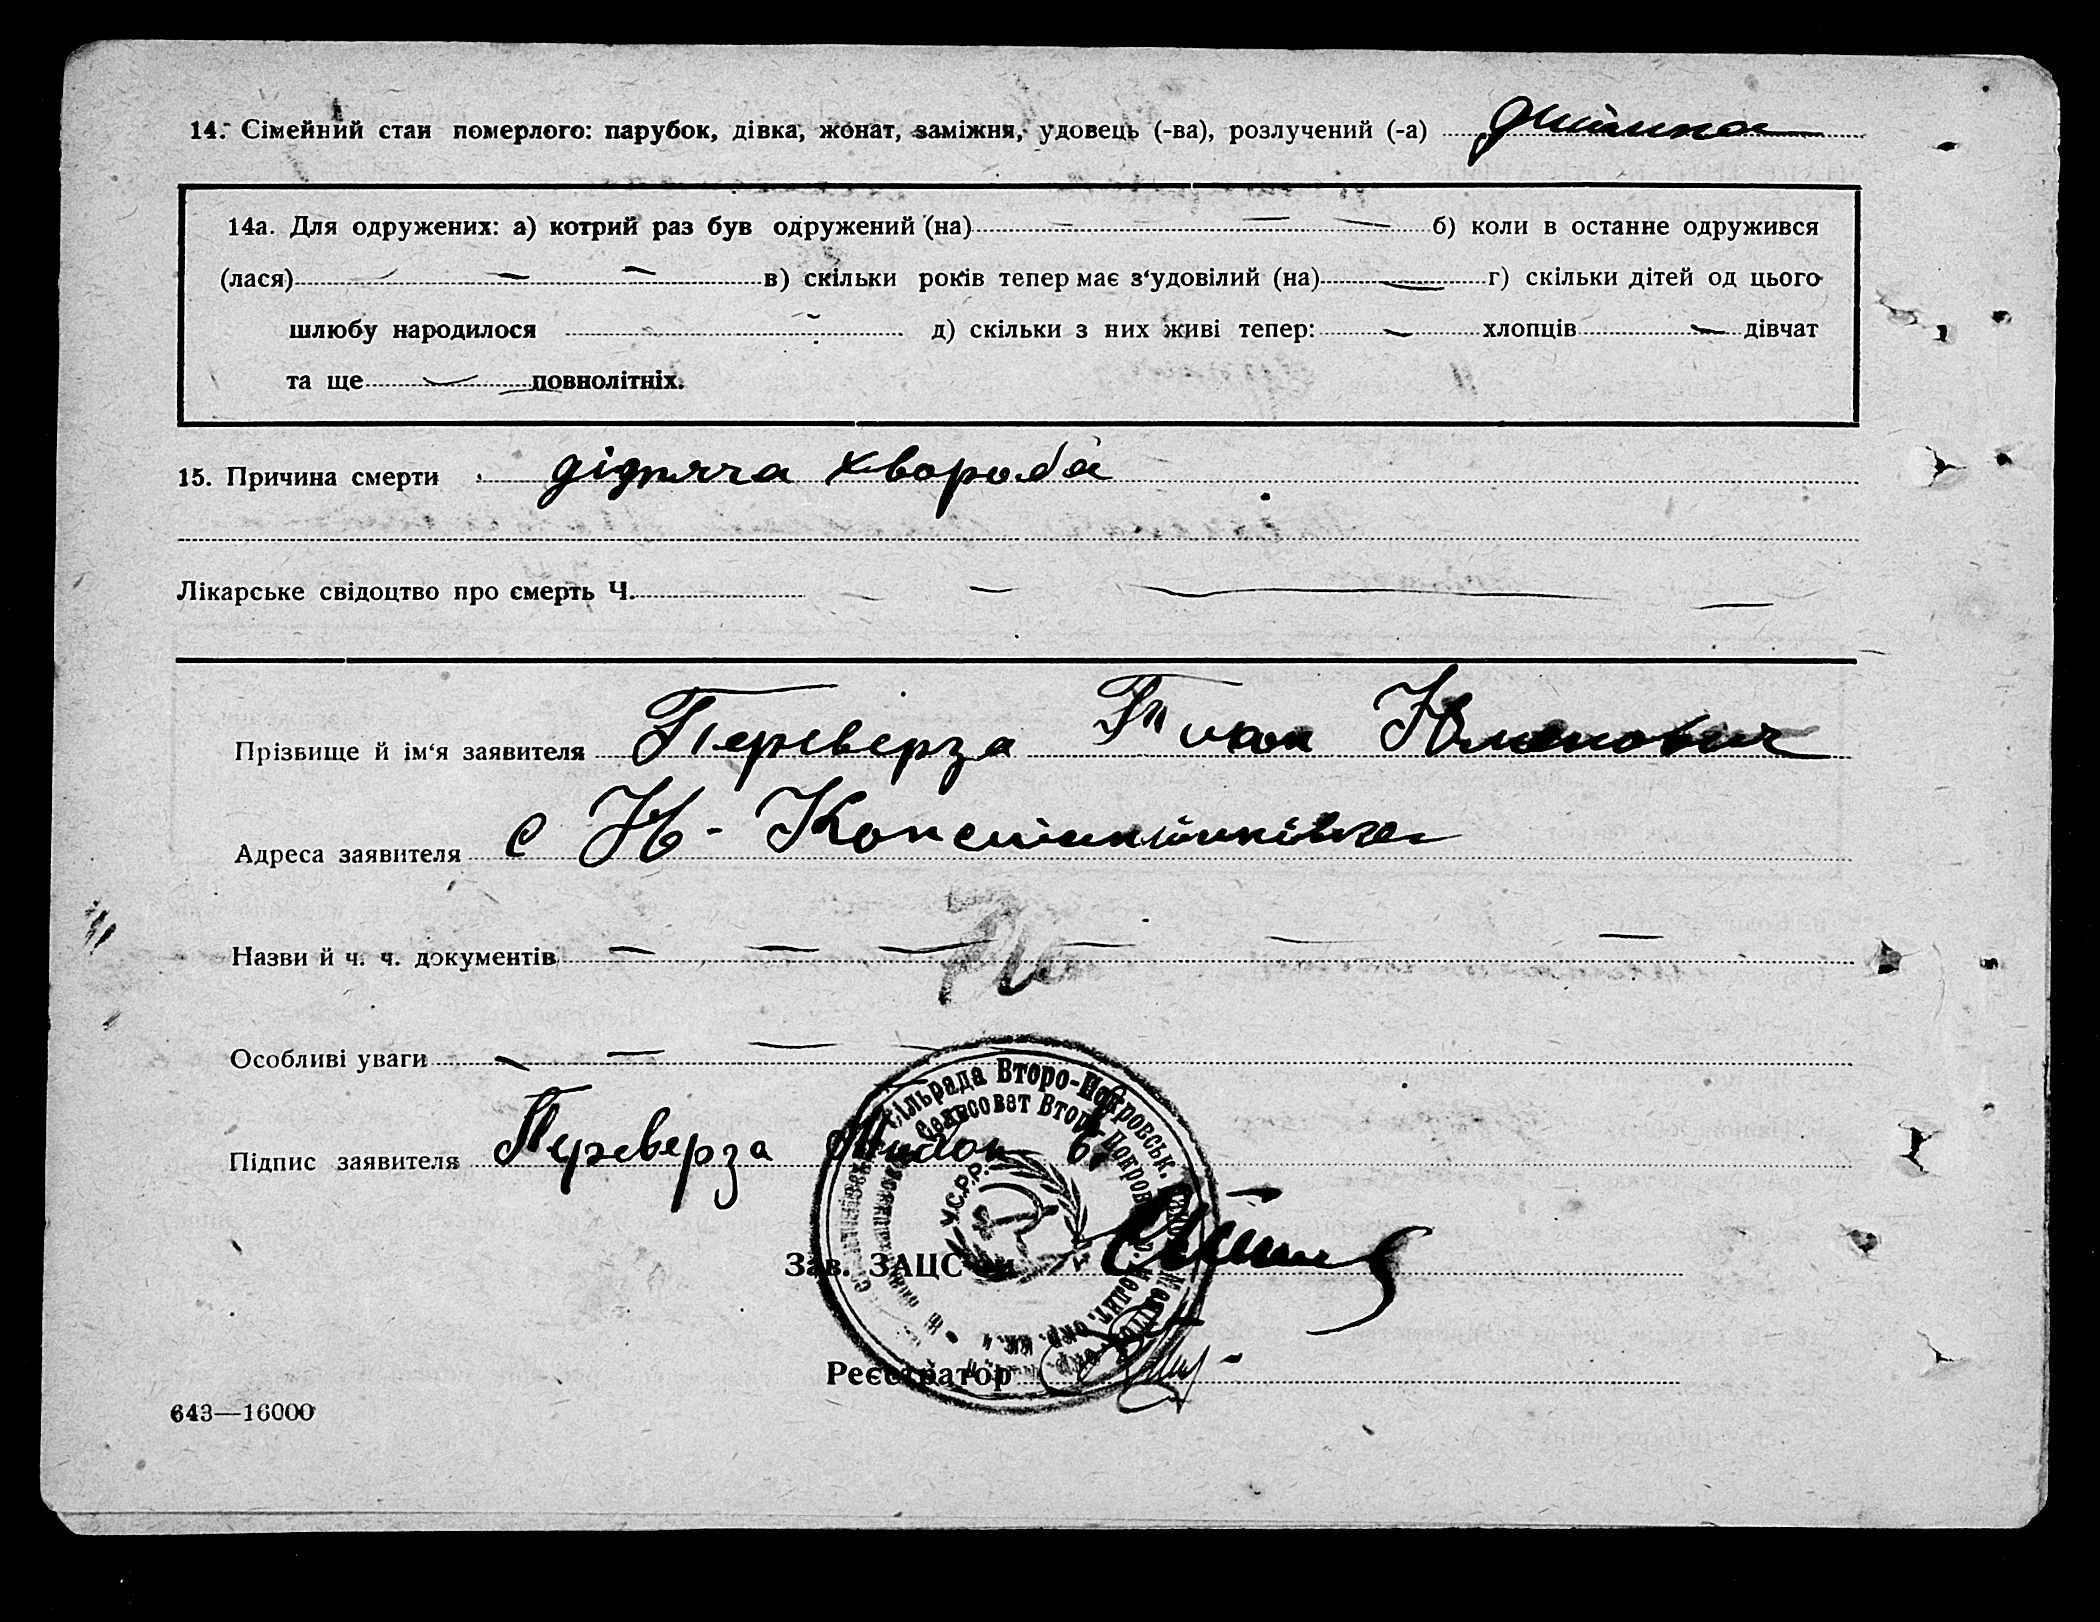 14. Сімейний стан померлого: парубок, дівка, жонат, заміжня, удовець (-ва), розлучений (-а) дитина
14а. Для одружених: а) котрий раз був одружений (на) — — — б) коли в останне одружився
(лася) — — — в) скільки років тепер має з‘удовілий (на) — г) скільки дітей од цього
шлюбу народилося — д) скільки з них живі тепер: — хлопців — дівчат
та ще — повнолітніх.
15. Причина смерти дідяча хвороба
Лікарське свідоцтво про смерть Ч. — — — —
Прізвище й ім‘я заявителя Переверза Тихон
Адреса заявителя с Н- Констянтинівка
Назви й ч. ч. документів — — — — — —
Особливі уваги — — — —
Підпис заявителя Переверза
Сільрада Второ-Покровськ.
Сельсовет Второ-Покров
У.С.Р.Р.
Зав. ЗАЦС‘ом
Реєстратор
643—16000